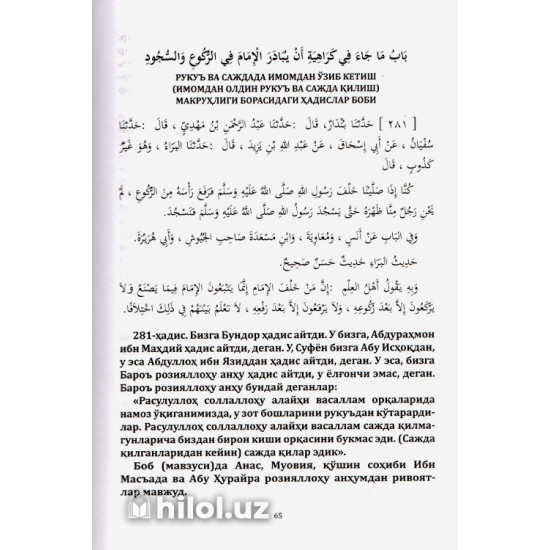 بَابُ مَا جَاءَ فِي كَرَاهِيَةِ أَنْ يُبَادَرَ الْإِمَامُ فِي الرُّكُوعِ وَالسُّجُودِ
РУКУЪ ВА САЖДАДА ИМОМДАН ЎЗИБ КЕТИШ
(ИМОМДАН ОЛДИН РУКУЪ ВА САЖДА ҚИЛИШ)
МАКРУҲЛИГИ БОРАСИДАГИ ҲАДИСЛАР БОБИ
[ ٢٨١ ] حَدَّثَنَا بُنْدَارٌ، قَالَ :حَدَّثَنَا عَبْدُ الرَّحْمَنِ بْنُ مَهْدِيٍّ ، قَالَ :حَدَّثَنَا
سُفْيَانُ ، عَنْ أَبِي إِسْحَاقَ ، عَنْ عَبْدِ اللهِ بْنِ يَزِيدَ ، قَالَ :حَدَّثَنَا البَرَاءُ ، وَهُوَ غَيْرُ
كَذُوبٍ ، قَالَ
كُنَّا إِذَا صَلَّيْنَا خَلْفَ رَسُولِ اللهِ صَلَّى اللهُ عَلَيْهِ وَسَلَّمَ فَرَفَعَ رَأْسَهُ مِنَ الرُّكُوعِ ، لَمْ
يَحْنِ رَجُلٌ مِنَّا ظَهْرَهُ حَتَّى يَسْجُدَ رَسُولُ اللهِ صَلَّى اللهُ عَلَيْهِ وَسَلَّمَ فَنَسْجُدَ.
وَفِي البَابِ عَنْ أَنَسٍ ، وَمُعَاوِيَةَ ، وَابْنِ مَسْعَدَةَ صَاحِبِ الجُيُوشِ ، وَأَبِي هُرَيْرَةَ.
حَدِيثُ البَرَاءِ حَدِيثٌ حَسَنٌ صَحِيحٌ.
وَبِهِ يَقُولُ أَهْلُ العِلْمِ :إِنَّ مَنْ خَلْفَ الإِمَامِ إِنَّمَا يَتْبَعُونَ الإِمَامَ فِيمَا يَصْنَعُ لَا
يَرْكَعُونَ إِلَّا بَعْدَ رُكُوعِهِ، وَلَا يَرْفَعُونَ إِلَّا بَعْدَ رَفْعِهِ ، لَا نَعْلَمُ بَيْنَهُمْ فِي ذَلِكَ اخْتِلَافًا.
281-ҳадис. Бизга Бундор ҳадис айтди. У бизга, Абдураҳмон
ибн Маҳдий ҳадис айтди, деган. У, Суфён бизга Абу Исҳоқдан,
у эса Абдуллоҳ ибн Язиддан ҳадис айтди, деган. У эса, бизга
Бароъ розияллоҳу анҳу ҳадис айтди, у ёлғончи эмас, деган.
Бароъ розияллоҳу анҳу бундай деганлар:
«Расулуллоҳ соллаллоҳу алайҳи васаллам орқаларида
намоз ўқиганимизда, у зот бошларини рукуъдан кўтарарди-
лар. Расулуллоҳ соллаллоҳу алайҳи васаллам сажда қилма-
гунларича биздан бирон киши орқасини букмас эди. (Сажда
қилганларидан кейин) сажда қилар эдик».
Боб (мавзуси)да Анас, Муовия, қўшин соҳиби Ибн
Масъада ва Абу Ҳурайра розияллоҳу анҳумдан ривоят-
лар мавжуд.
65
hilol.uz